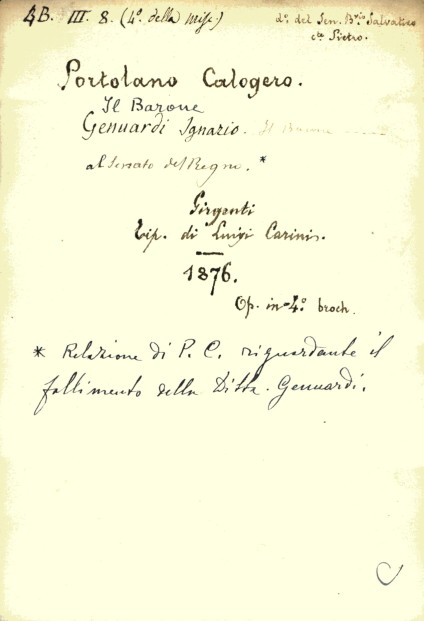 4B. III. 8. (4º. della misc.)
dº. del Sen. Bne Salvatico
cte Pietro.
Portolano Calogero.
Il Barone
Genuardi Ignazio. Il Barone
al Senato del Regno. *
Girgenti
Tip. di Luigi Carini.
1876.
Op. in-4.º broch.
* Relazione di P. C. riguardante il
fallimento della Ditta Genuardi.